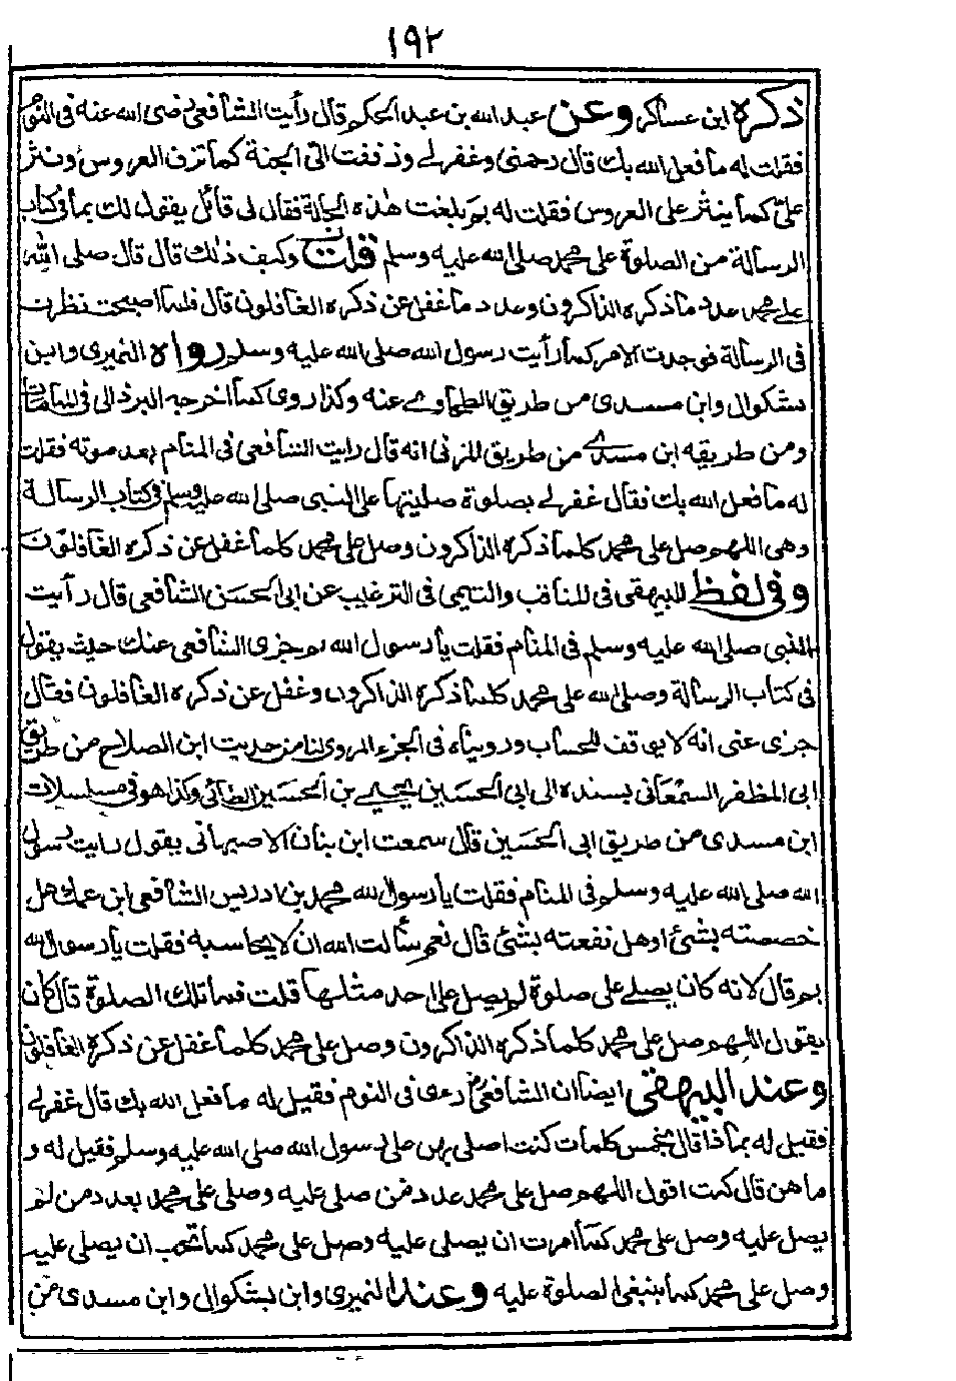 ١٩٢
ذكره ابن عساكر وعن عبد الله بن عبد الحكم قال رأيت الشافعي رضى الله عنه فى النوم
فقلت له ما فعل الله بك قال رحمنى وغفر لے وزففت الى الجنة كما تزف العروس ونثر
علىّ كما ينثر على العروس فقلت له بم بلغت هذه الحالة فقال لى قائل يقول لك بما فى كتاب
الرسالة من الصلوة على محمد صلى الله عليه وسلم قلت وكيف ذلك قال قال صلى الله
على محمد عدد ما ذكره الذاكرون وعدد ما غفل عن ذكره الغافلون قال فلما اصبحت نظرت
فى الرسالة فوجدت الامر كما رأيت رسول الله صلى الله عليه وسلم رواه النميرى وابن
بشكوال وابن مسدى من طريق الطحاوے عنه وكذا روى كما اخرجه البرذالى فى
ومن طريقه ابن مسدے من طريق المزنى انه قال رايت الشافعى فى المنام بعد موته فقلت
له ما فعل الله بك فقال غفر لے بصلوة صليتها على النبى صلى الله عليه وسلم فى كتاب الرسالة
وهى اللهم صل على محمد كلما ذكره الذاكرون وصل على محمد كلما غفل عن ذكره الغافلون
وفى لفظ للبيهقى فى المناقب والتيمى فى الترغيب عن ابى الحسن الشافعى قال رأيت
النبى صلى الله عليه وسلم فى المنام فقلت يا رسول الله بم جزى الشافعى عنك حيث يقول
فى كتاب الرسالة وصلى الله على محمد كلما ذكره الذاكرون وغفل عن ذكره الغافلون فقال
جزى عنى انه لا يوقف للحساب وروينا فى الجزء المروى لنا من حديث ابن الصلاح من طريق
ابى المظفر السمعانى بسنده الى ابى الحسين يحيے بن الحسين الطائى وكذا هو فى مسلسلات
ابن مسدى من طريق ابى الحسين قال سمعت ابن بنان الاصبهانى يقول رايت رسول
الله صلى الله عليه وسلم فى المنام فقلت يا رسول الله محمد بن ادريس الشافعى ابن عمك هل
خصصته بشئ او هل نفعته بشئ قال نعم سألت الله ان لا يحاسبه فقلت يا رسول الله
بم قال لانه كان يصلے على صلوة لم يصل على احد مثلها قلت فما تلك الصلوة قال كان
يقول اللهم صل على محمد كلما ذكره الذاكرون وصل على محمد كلما غفل عن ذكره الغافلون
وعند البيهقى ايضا ان الشافعى رؤى فى النوم فقيل له ما فعل الله بك قال غفر لے
فقيل له بماذا قال بخمس كلمات كنت اصلى بهن على رسول الله صلى الله عليه وسلم فقيل له و
ما هن قال كنت اقول اللهم صل على محمد عدد من صلى عليه وصلى على محمد بعدد من لم
يصل عليه وصل على محمد كما امرت ان يصلى عليه وصل على محمد كما تحب ان يصلى عليه
وصل على محمد كما ينبغى الصلوة عليه وعند النميرى وابن بشكوال وابن مسدى من